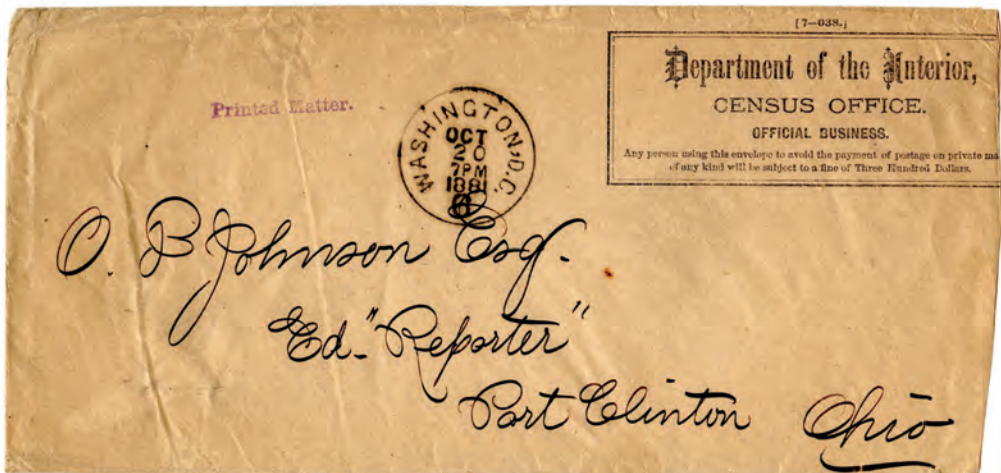 [7—038.]
Department of the Interior,
CENSUS OFFICE.
OFFICIAL BUSINESS.
Any person using this envelope to avoid the payment of postage on private ma
of any kind will be subject to a fine of Three Hundred Dollars.
Printed Matter.
WASHINGTON, D.C.
OCT
20
7PM
1881
O. B Johnson Esq.
Ed. "Reporter"
Port Clinton Ohio